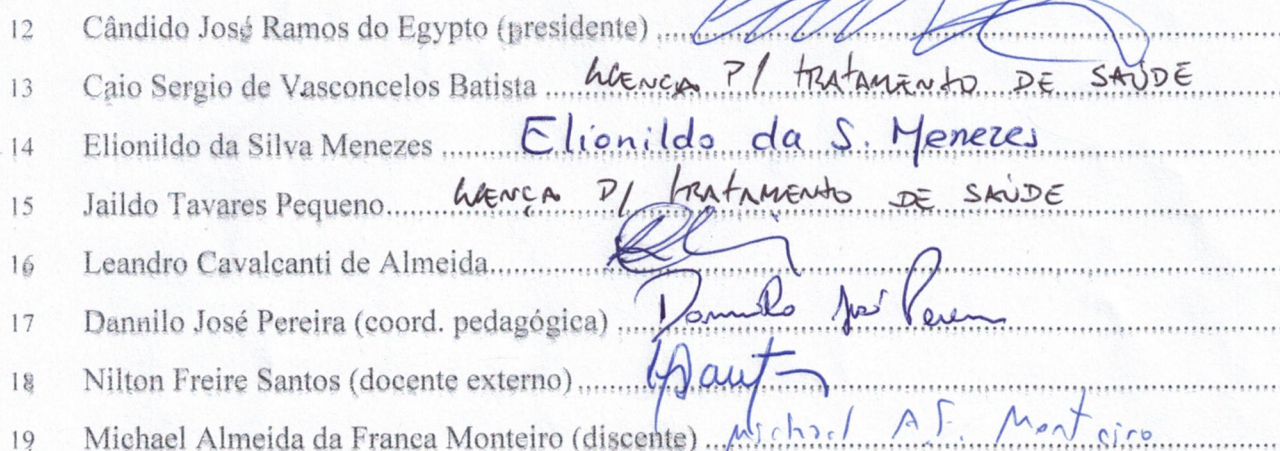 12 Cândido José Ramos do Egypto (presidente)
13 Caio Sergio de Vasconcelos Batista LICENÇA P/ TRATAMENTO DE SAÚDE
14 Elionildo da Silva Menezes Elionildo da S. Menezes
15 Jaildo Tavares Pequeno LICENÇA P/ TRATAMENTO DE SAÚDE
16 Leandro Cavalcanti de Almeida
17 Dannilo José Pereira (coord. pedagógica) Dannilo José Pereira
18 Nilton Freire Santos (docente externo)
19 Michael Almeida da Franca Monteiro (discente) Michael A.F. Monteiro